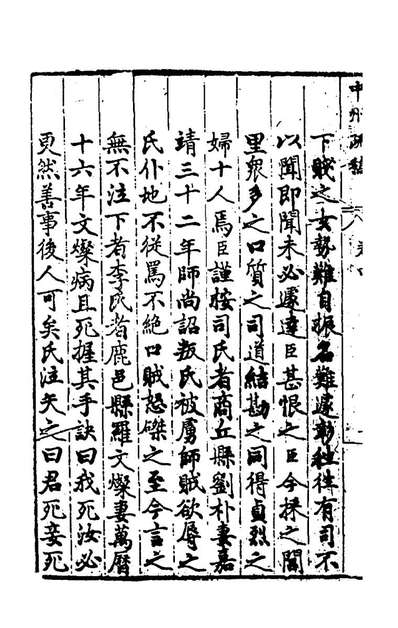 中州疏稿
下賤之女勢難自振名難遽彰往往有司不
以聞即聞未必遽達臣甚恨之臣今採之閭
里衆多之口質之司道結勘之同得貞烈之
婦十人焉臣謹按司氏者商丘縣劉朴妻嘉
靖三十二年師尚詔叛氏被虜師賊欲辱之
氏仆地不從罵不絶口賊怒磔之至今言之
無不泣下者李氏者鹿邑縣羅文燦妻萬曆
十六年文燦病且死握其手訣曰我死汝必
更然善事後人可矣氏泣矢之曰君死妾死